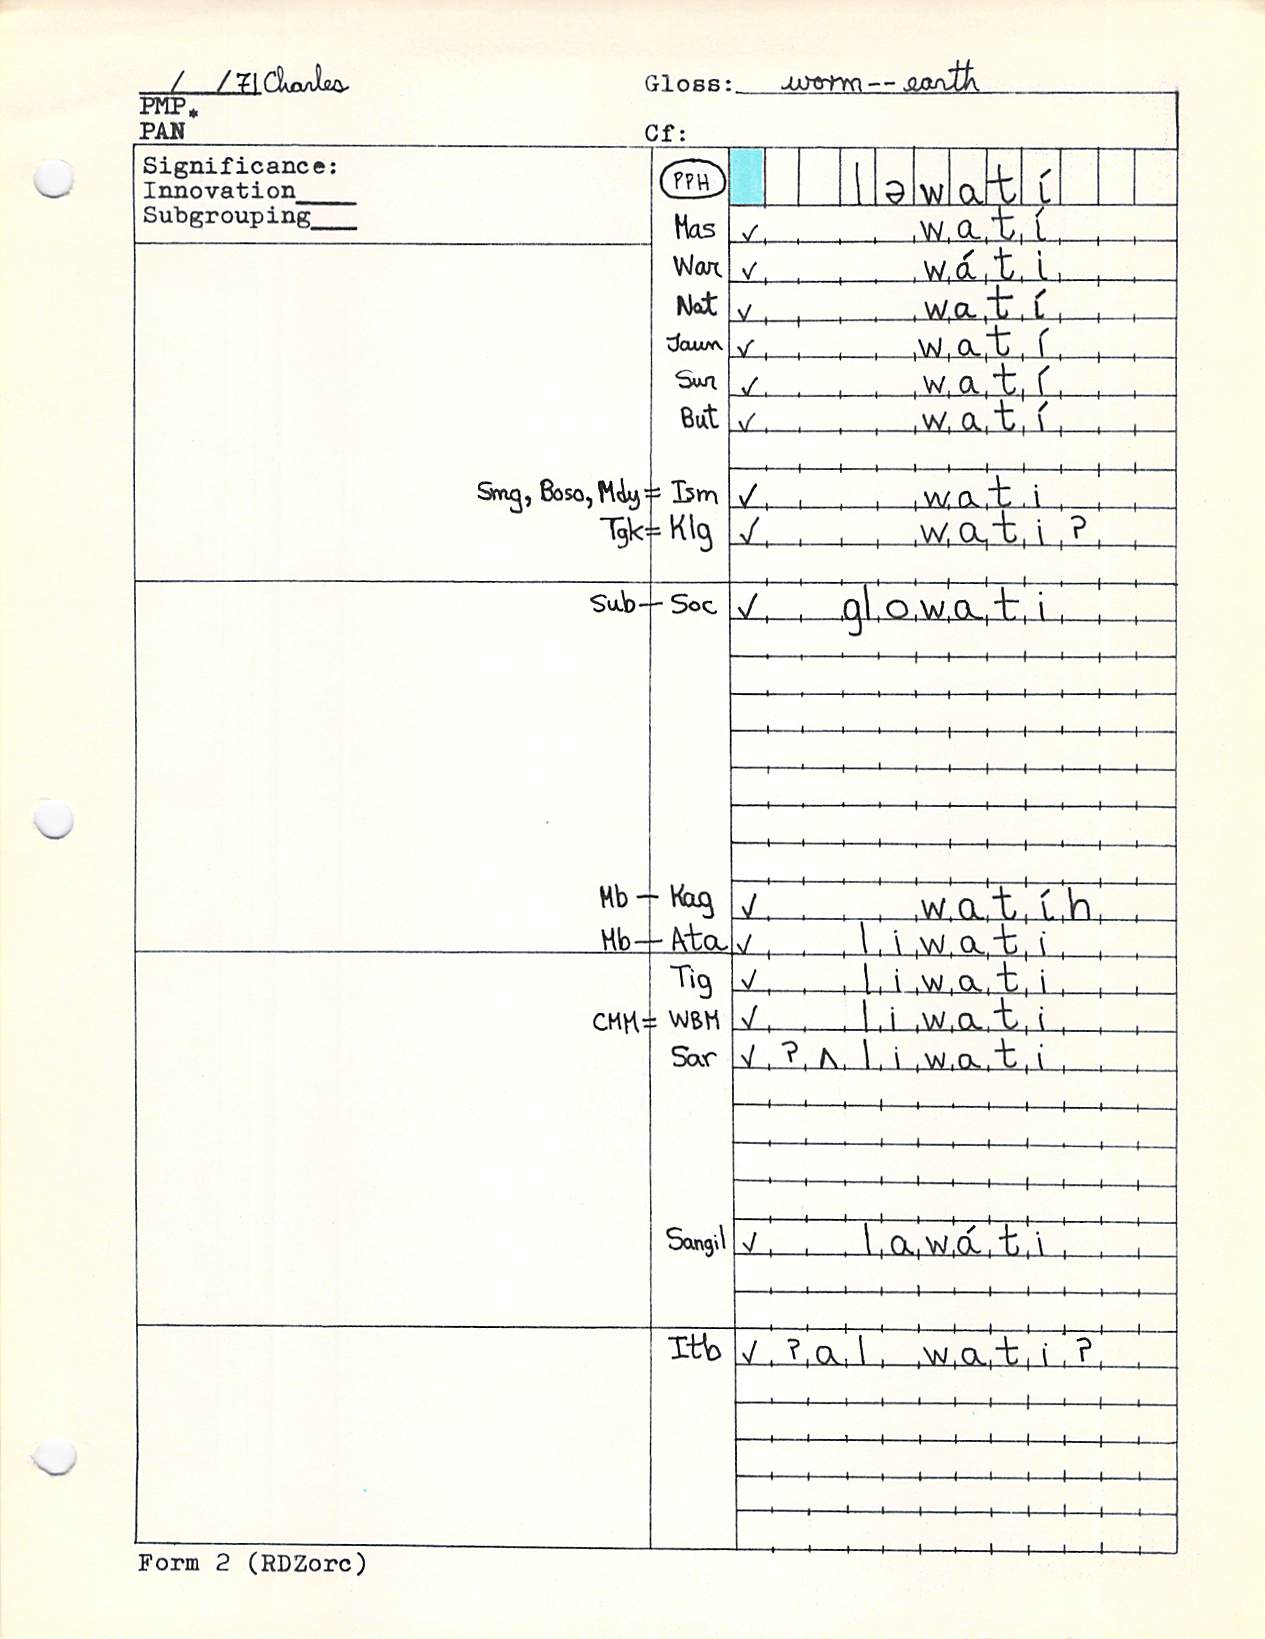 / /71 Charles Gloss: worm--earth
PMP*
PAN Cf:
Significance: PPH ləwatí
Innovation____
Subgrouping____
Mas ✓ watí
War ✓ wáti
Nat ✓ watí
Jaun ✓ watí
Sur ✓ watí
But ✓ watí
Smg, Boso, Mdy = Ism ✓ wati
Tgk = Klg ✓ wati?
Sub — Soc ✓ glowati
Mb — Kag ✓ watíh
Mb — Ata ✓ liwati
Tig ✓ liwati
CMM = WBM ✓ liwati
Sar ✓ ?ʌliwati
Sangil ✓ lawáti
Itb ✓ ?al wati?
Form 2 (RDZorc)